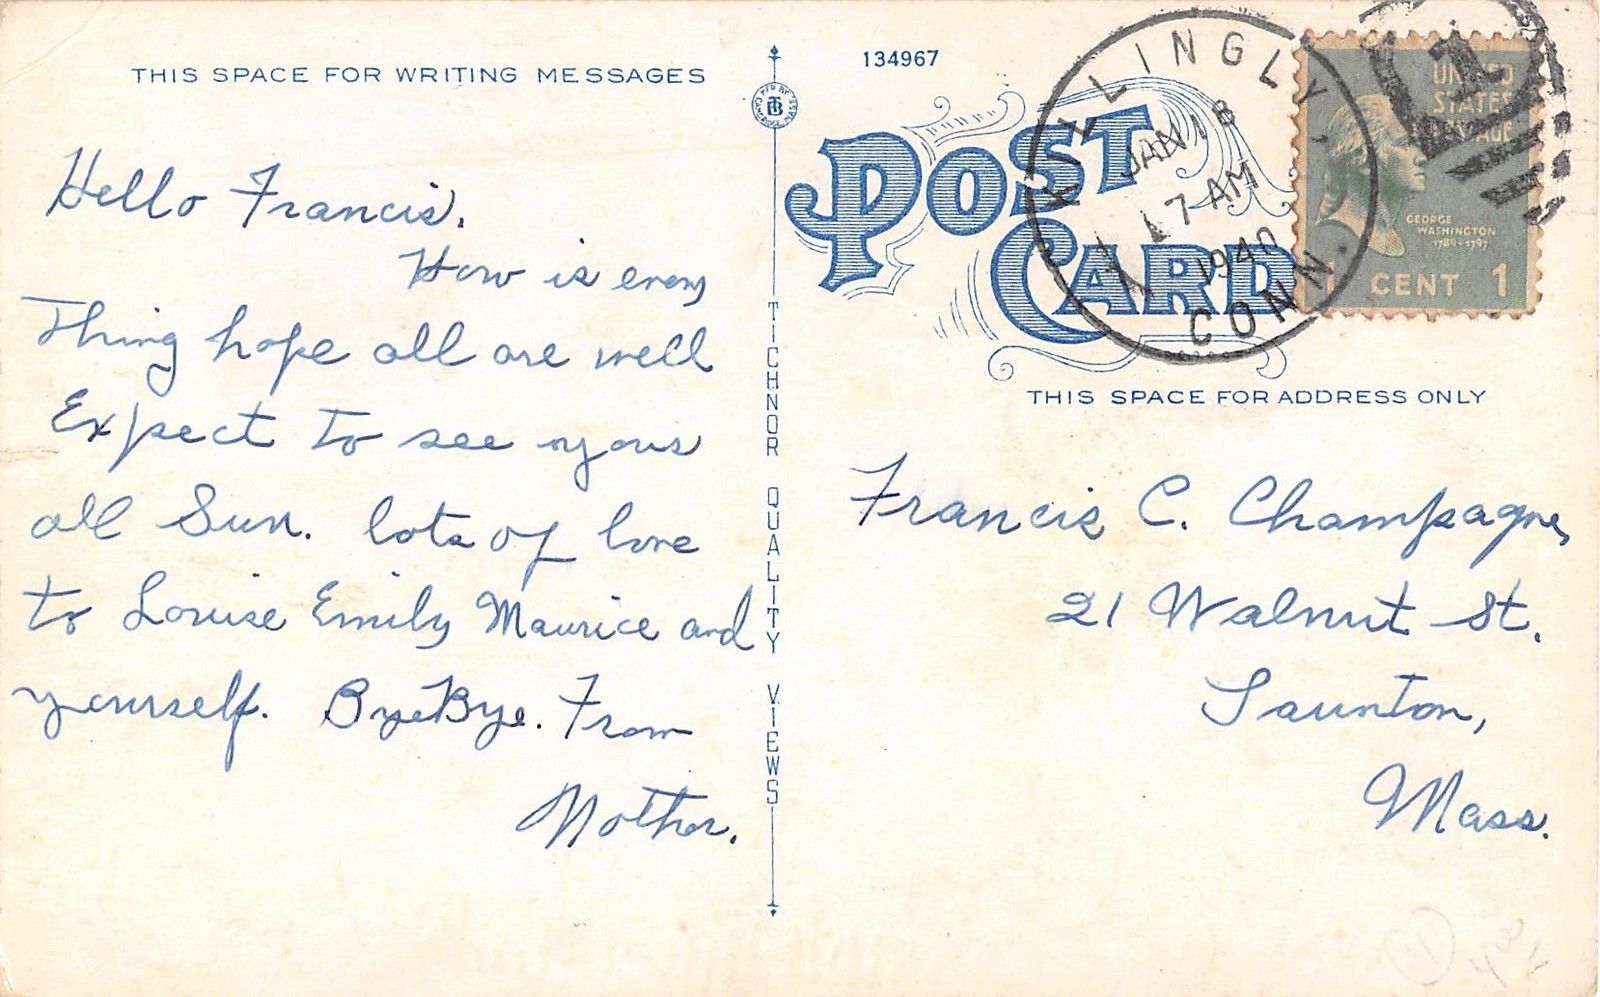 THIS SPACE FOR WRITING MESSAGES
Hello Francis,
How is every
Thing hope all are well
Expect to see yous
all Sun. lots of love
to Louise Emily Maurice and
yourself. Bye Bye. From
Mother.
MFD BY
TB
CAMBRIDGE, MASS
TICHNOR QUALITY VIEWS
134967
POST
CARD
KILLINGLY,
JAN 18
7 AM
1940
CONN.
1
UNITED
STATES
POSTAGE
GEORGE
WASHINGTON
1789-1797
1 CENT 1
THIS SPACE FOR ADDRESS ONLY
Francis C. Champagne,
21 Walnut St.
Taunton,
Mass.